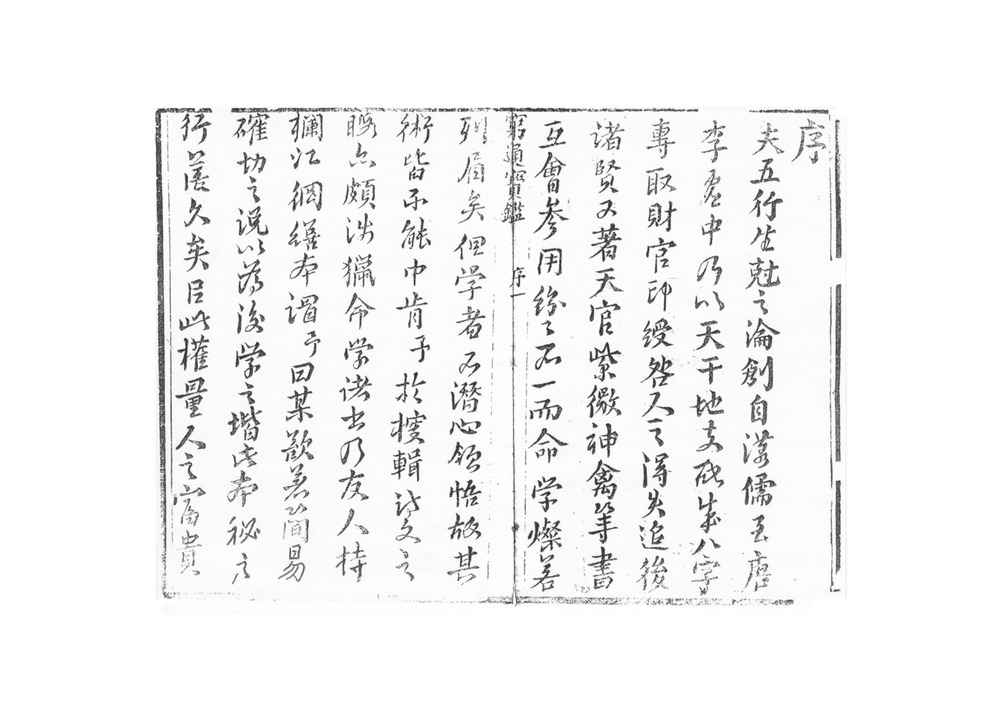 序
夫五行生尅之論創自漢儒至唐
李虛中乃以天干地支配成八字
專取財官印綬咎人之得失追後
諸賢又著天官紫微神禽等書
互會參用紛々不一而命學燦若
窮通寶鑑
序一
列眉矣但学者不潛心領悟故其
術皆不能中肯予於櫦輯詩文之
暇亦頗涉獵命学諸书乃友人持
欄江網繕本謂予曰某歡若蕳易
確切之說以為後学之堦此本秘之
行篋久矣臣此權量人之富貴